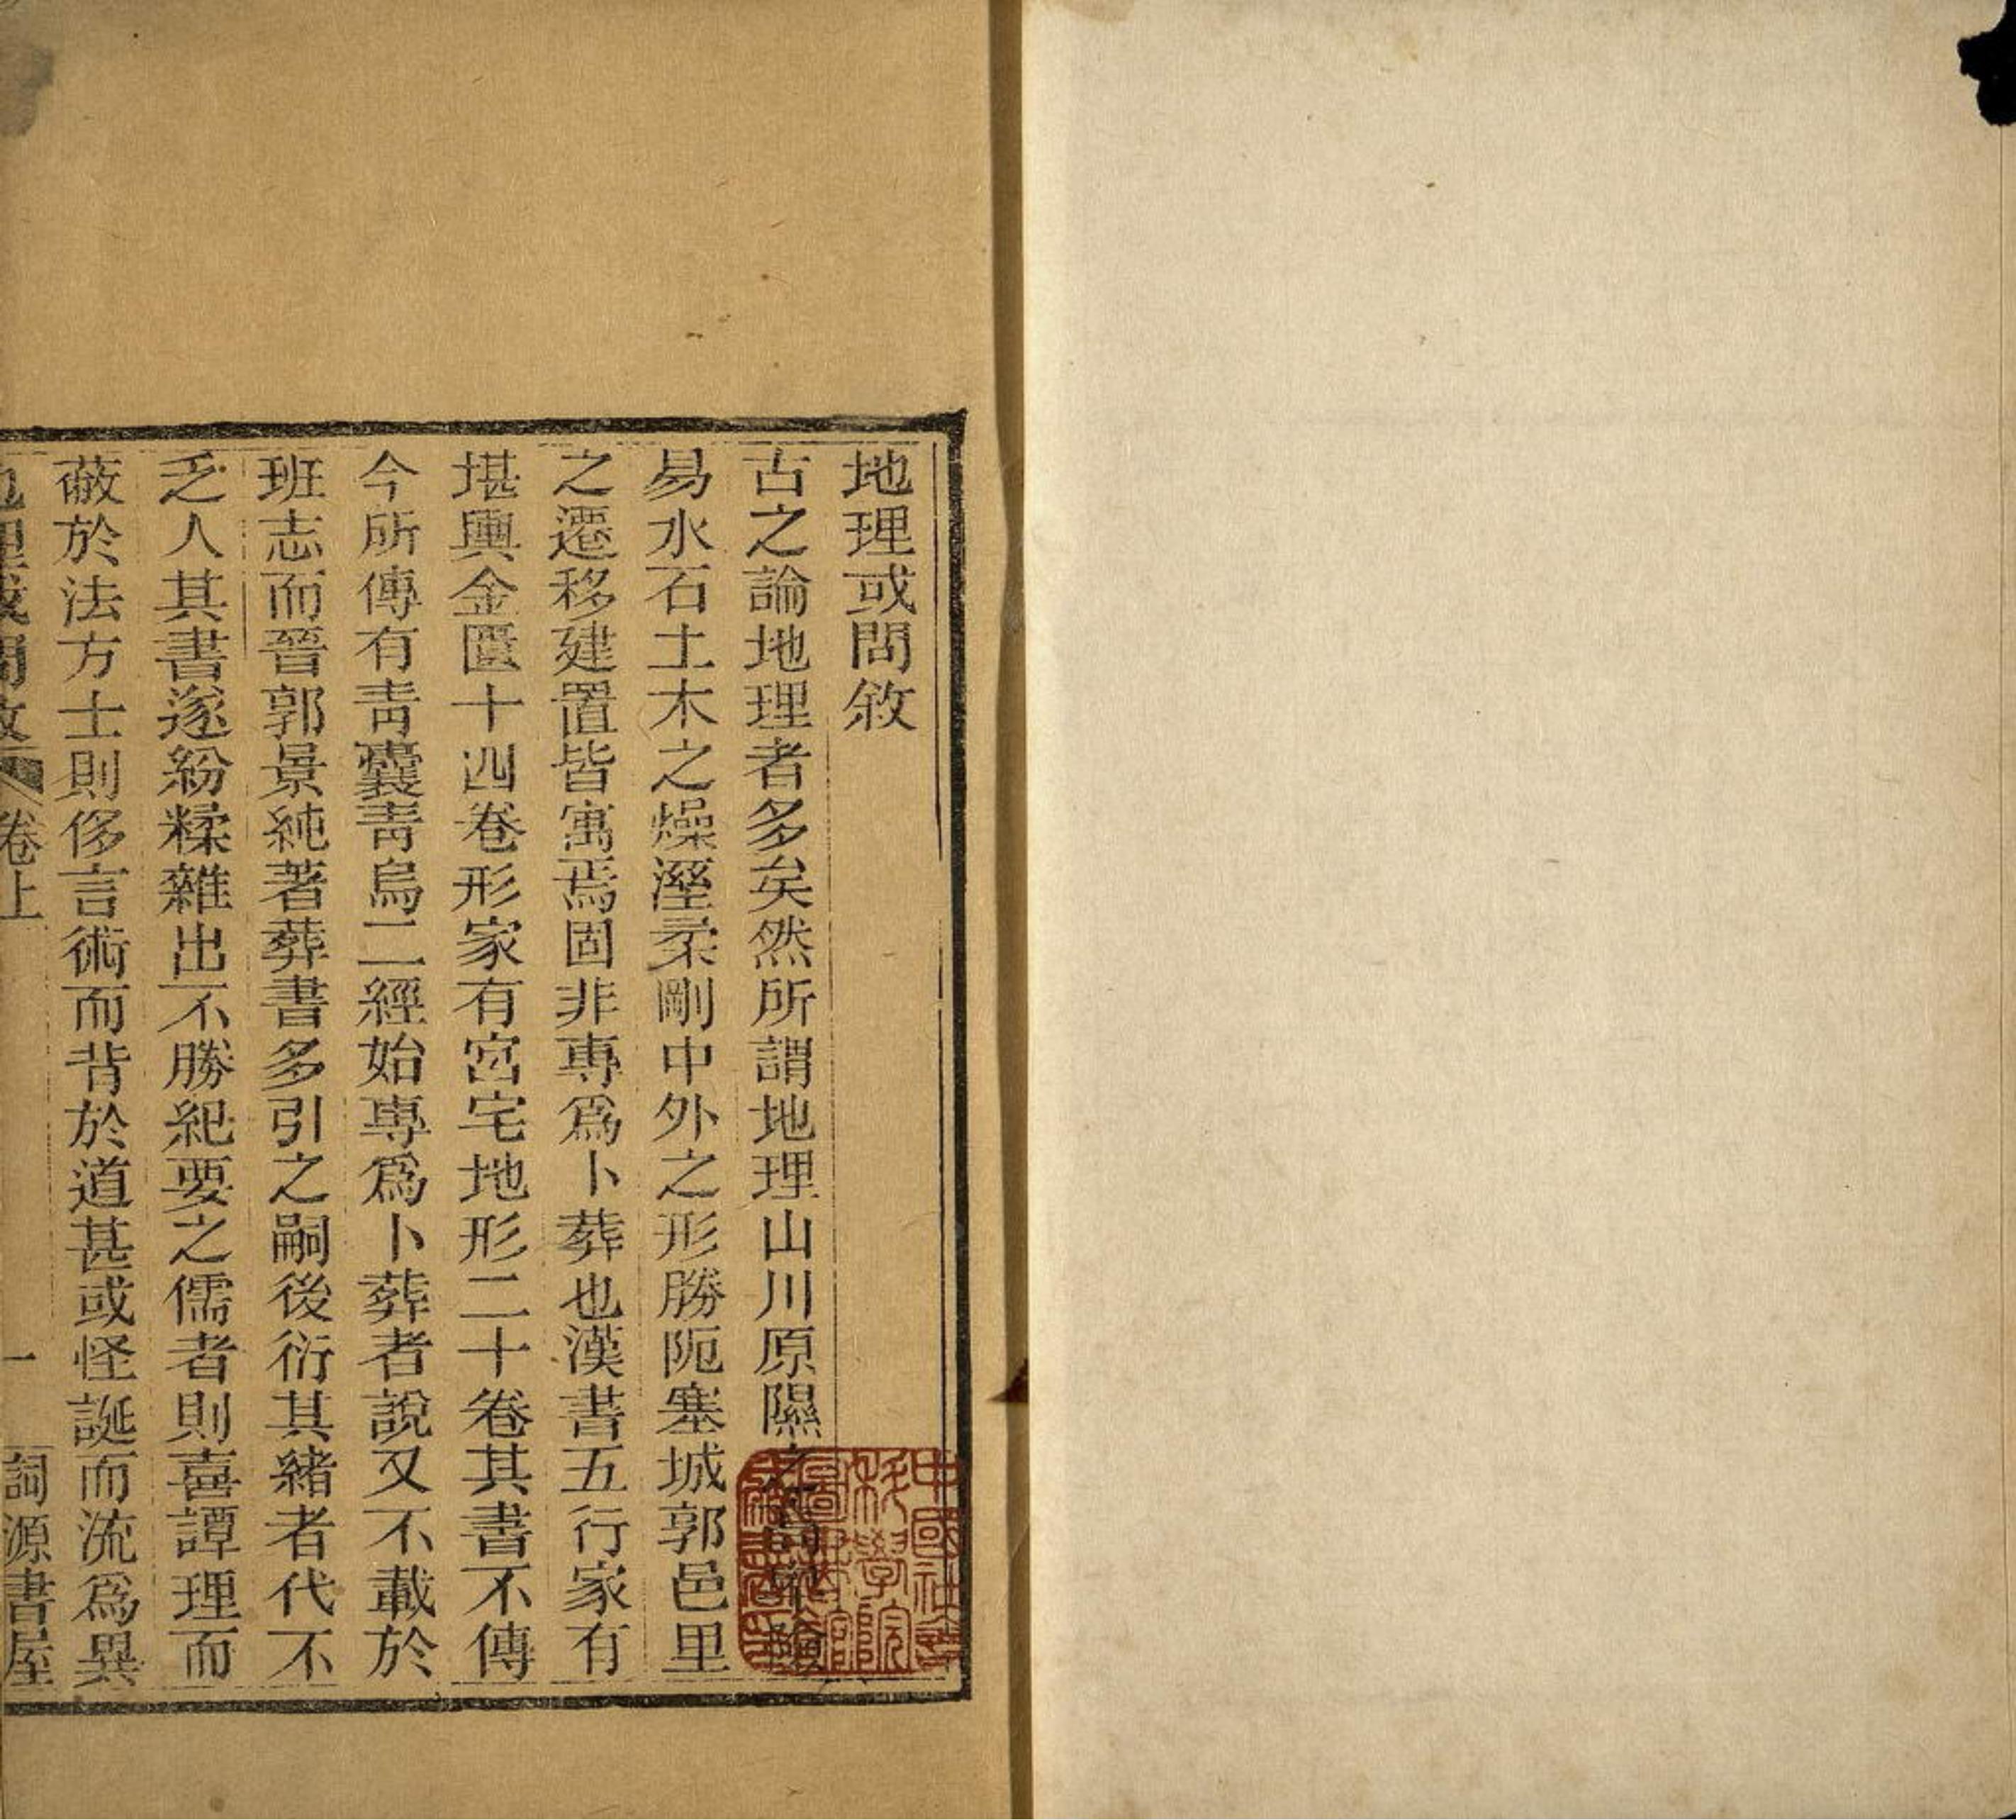 地理或問敘
古之論地理者多矣然所謂地理山川原隰之高卑險
易水石土木之燥溼柔剛中外之形勝阨塞城郭邑里
之遷移建置皆寓焉固非專爲卜葬也漢書五行家有
堪輿金匱十四卷形家有宮宅地形二十卷其書不傳
今所傳有靑囊靑烏二經始專爲卜葬者說又不載於
班志而晉郭景純著葬書多引之嗣後衍其緒者代不
乏人其書遂紛糅雜出不勝紀要之儒者則喜譚理而
蔽於法方士則侈言術而背於道甚或怪誕而流爲異
地理或問敘 卷上 一 詞源書屋
中國社會
科學院
圖書館
藏書印